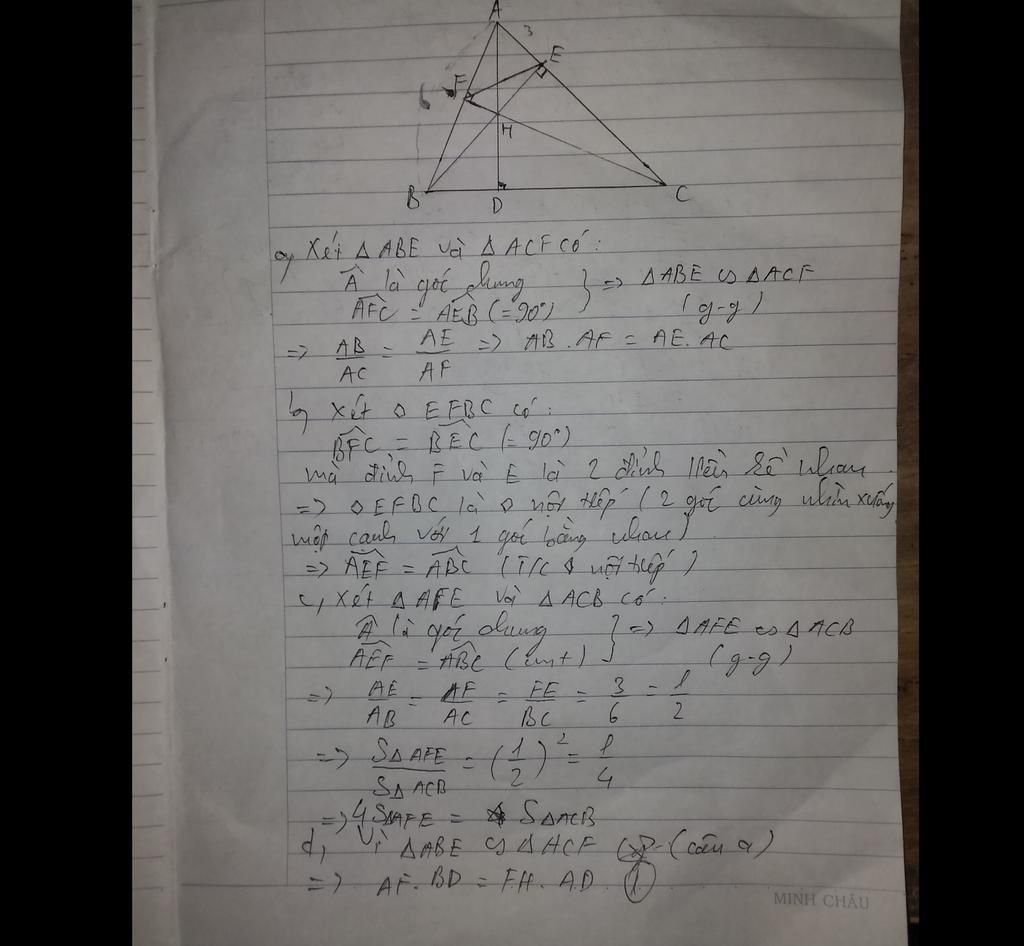 A
3
E
F
6
H
B
D
C
a, Xét Δ ABE và Δ ACF có:
Â là góc chung } => Δ ABE ∽ Δ ACF
AFC = AEB (= 90°) (g-g)
=> AB/AC = AE/AF => AB . AF = AE . AC
b, Xét ◊ EFBC có:
BFC = BEC (= 90°)
mà đỉnh F và E là 2 đỉnh kề nhau
=> ◊ EFBC là ◊ nội tiếp (2 góc cùng nhìn xuống
một cạnh với 1 góc bằng nhau)
=> AEF = ABC (T/C ◊ nội tiếp)
c, Xét Δ AFE và Δ ACB có:
Â là góc chung } => Δ AFE ∽ Δ ACB
AEF = ABC (cmt) (g-g)
=> AE/AB = AF/AC = FE/BC = 3/6 = 1/2
=> SΔ AFE/SΔ ACB = (1/2)² = 1/4
=> 4 SΔAFE = SΔACB
d, Vì Δ ABE ∽ Δ ACF (câu a)
=> AF . BD = FH . AD (1)
MINH CHÂU